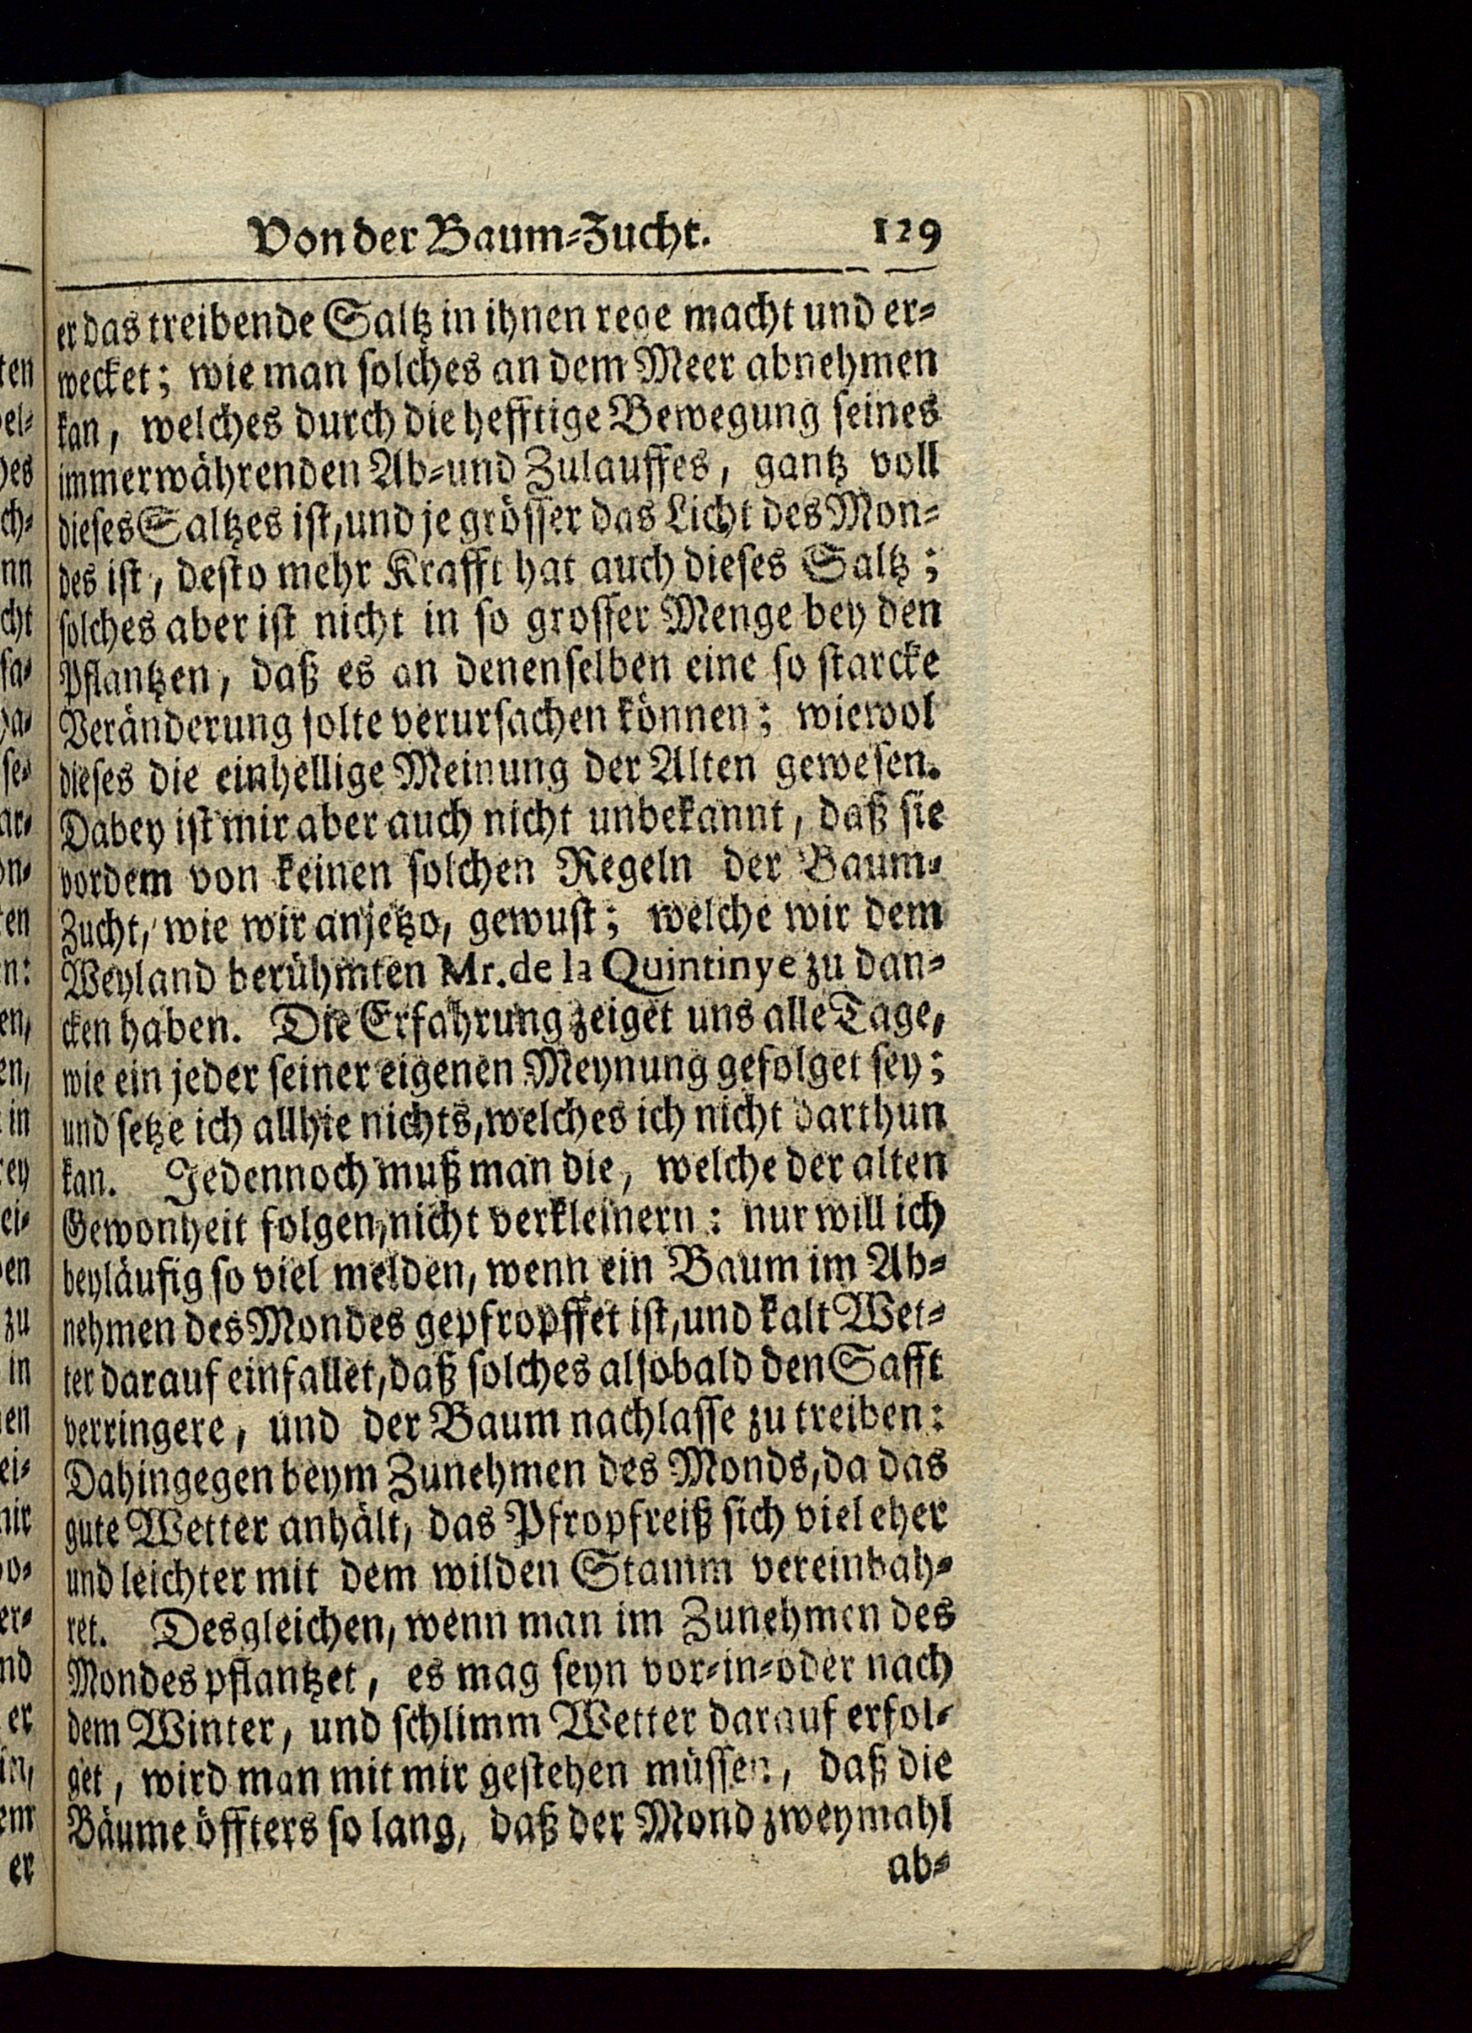 Von der Baum-Zucht. 129
er das treibende Saltz in ihnen rege macht und er-
wecket; wie man solches an dem Meer abnehmen
kan, welches durch die hefftige Bewegung seines
immerwährenden Ab-und Zulauffes, gantz voll
dieses Saltzes ist, und je grösser das Licht des Mon-
des ist, desto mehr Krafft hat auch dieses Saltz;
solches aber ist nicht in so grosser Menge bey den
Pflantzen, daß es an denenselben eine so starcke
Veränderung solte verursachen können; wiewol
dieses die einhellige Meinung der Alten gewesen.
Dabey ist mir aber auch nicht unbekannt, daß sie
vordem von keinen solchen Regeln der Baum-
Zucht, wie wir anjetzo, gewust; welche wir dem
Weyland berühmten Mr. de la Quintinye zu dan-
cken haben. Die Erfahrung zeiget uns alle Tage,
wie ein jeder seiner eigenen Meynung gefolget sey;
und setze ich allhie nichts, welches ich nicht darthun
kan. Jedennoch muß man die, welche der alten
Gewonheit folgen, nicht verkleinern: nur will ich
beyläufig so viel melden, wenn ein Baum im Ab-
nehmen des Mondes gepfropffet ist, und kalt Wet-
ter darauf einfallet, daß solches alsobald den Safft
verringere, und der Baum nachlasse zu treiben:
Dahingegen beym Zunehmen des Monds, da das
gute Wetter anhält, das Pfropfreiß sich viel eher
und leichter mit dem wilden Stamm vereinbah-
ret. Desgleichen, wenn man im Zunehmen des
Mondes pflantzet, es mag seyn vor-in-oder nach
dem Winter, und schlimm Wetter darauf erfol-
get, wird man mit mir gestehen müssen, daß die
Bäume öffters so lang, daß der Mond zweymahl
ab-